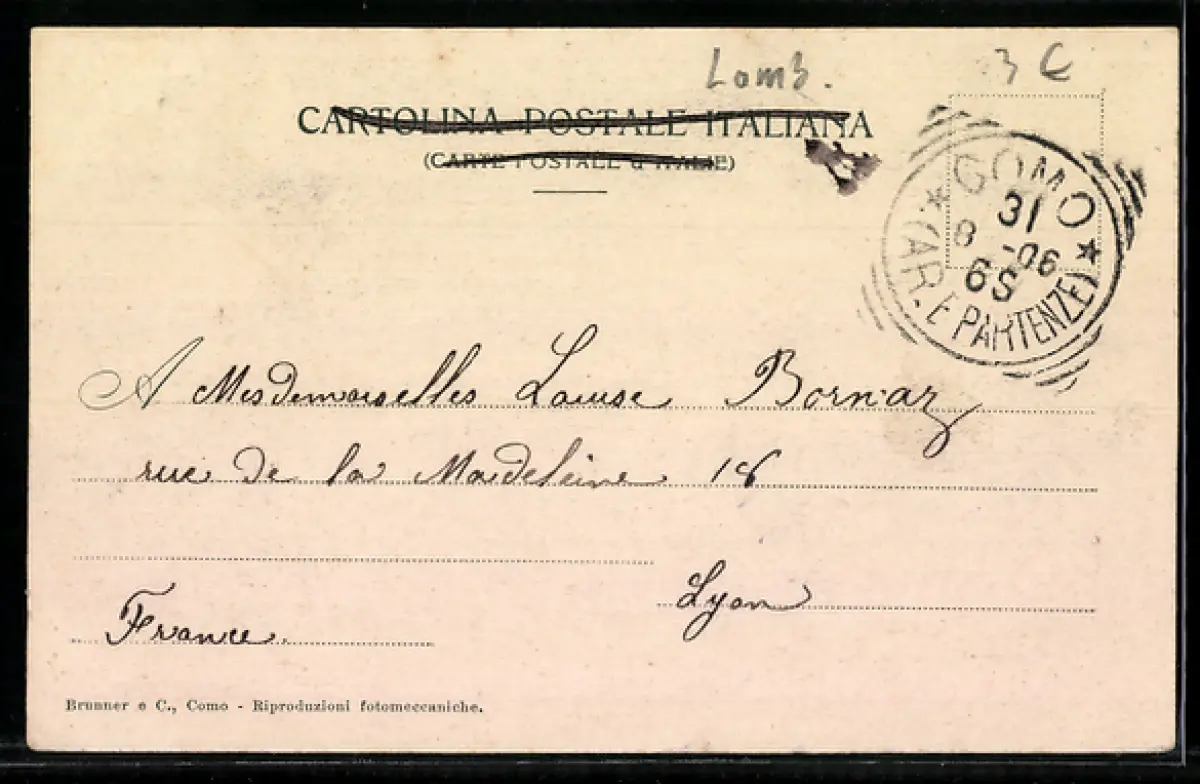 Lomb.
3 €
CARTOLINA POSTALE ITALIANA
(CARTE POSTALE d'ITALIE)
COMO
31
8 -06
6S
(AR. E PARTENZE)
A Mesdemoiselles Louise Bornaz
rue de la Madeleine 18
Lyon
France.
Brunner e C., Como - Riproduzioni fotomeccaniche.